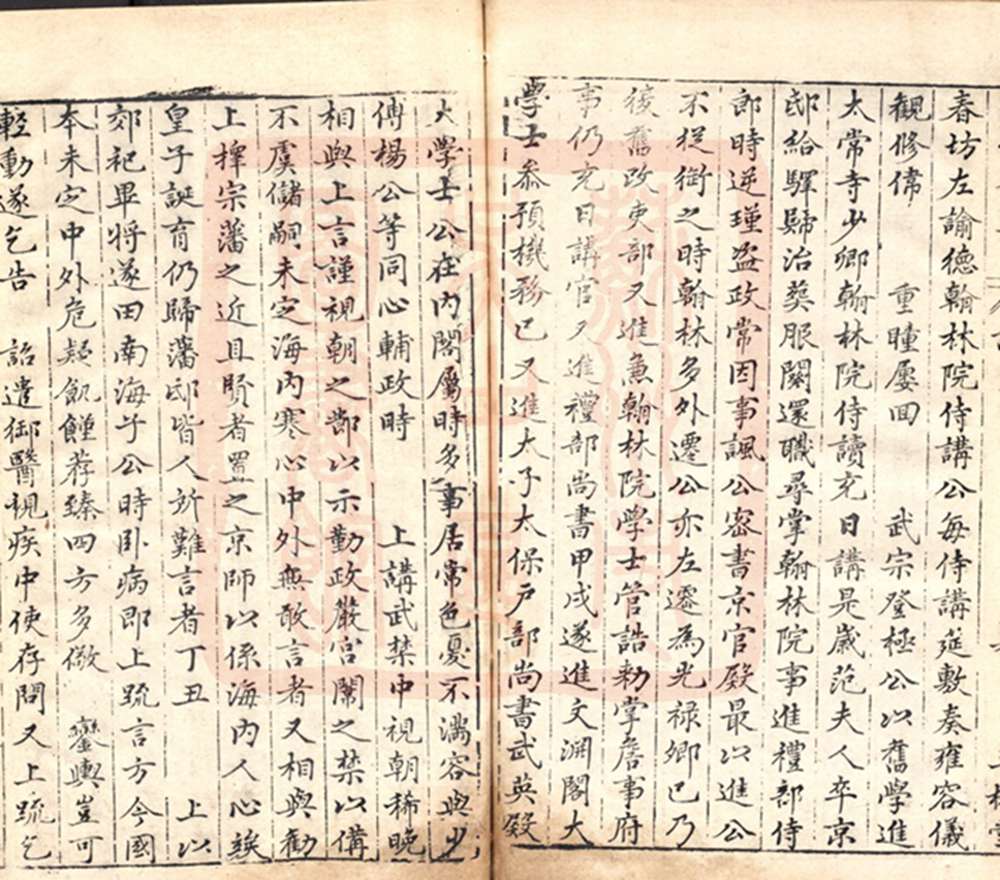 春坊左諭德翰林院侍講公每侍講筵敷奏雍容儀
觀修偉　重瞳屢回　武宗登極公以舊學進
太常寺少卿翰林院侍讀充日講是歲范夫人卒京
邸給驛歸治葬服闋還職尋掌翰林院事進禮部侍
郎時逆瑾盜政常因事諷公密書京官殿最以進公
不從銜之時翰林多外遷公亦左遷為光祿卿已乃
復舊改吏部又進兼翰林院學士管誥勅掌詹事府
事仍充日講官又進禮部尚書甲戌遂進文淵閣大
學士叅預機務已又進太子太保戶部尚書武英殿
大學士公在內閣屬時多事居常色憂不滿容與少
傅楊公等同心輔政時　上講武禁中視朝稀晚
相與上言謹視朝之節以示勤政嚴宮闈之禁以備
不虞儲嗣未定海內寒心中外無敢言者又相與勸
上擇宗藩之近且賢者置之京師以係海內人心俟
皇子誕育仍歸藩邸皆人所難言者丁丑　上以
郊祀畢將遂田南海子公時卧病即上疏言方今國
本未定中外危疑飢饉荐臻四方多儆　鑾輿豈可
輕動遂乞告　詔遣御醫視疾中使存問又上疏乞